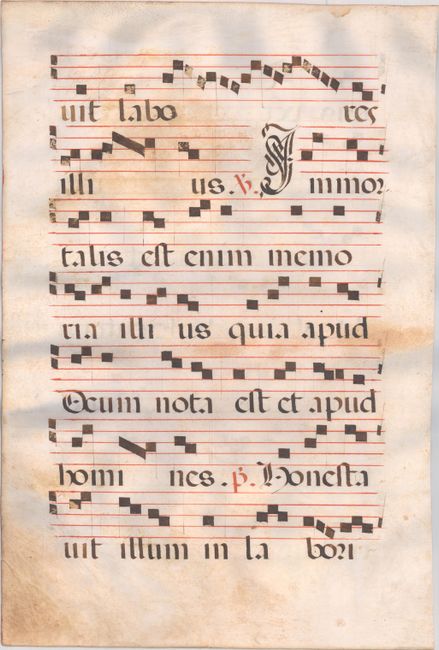 uit labo res
illi us. ℣. Immor
talis est enim memo
ria illi us quia apud
Deum nota est et apud
homi nes. p. Honesta
uit illum in la bori